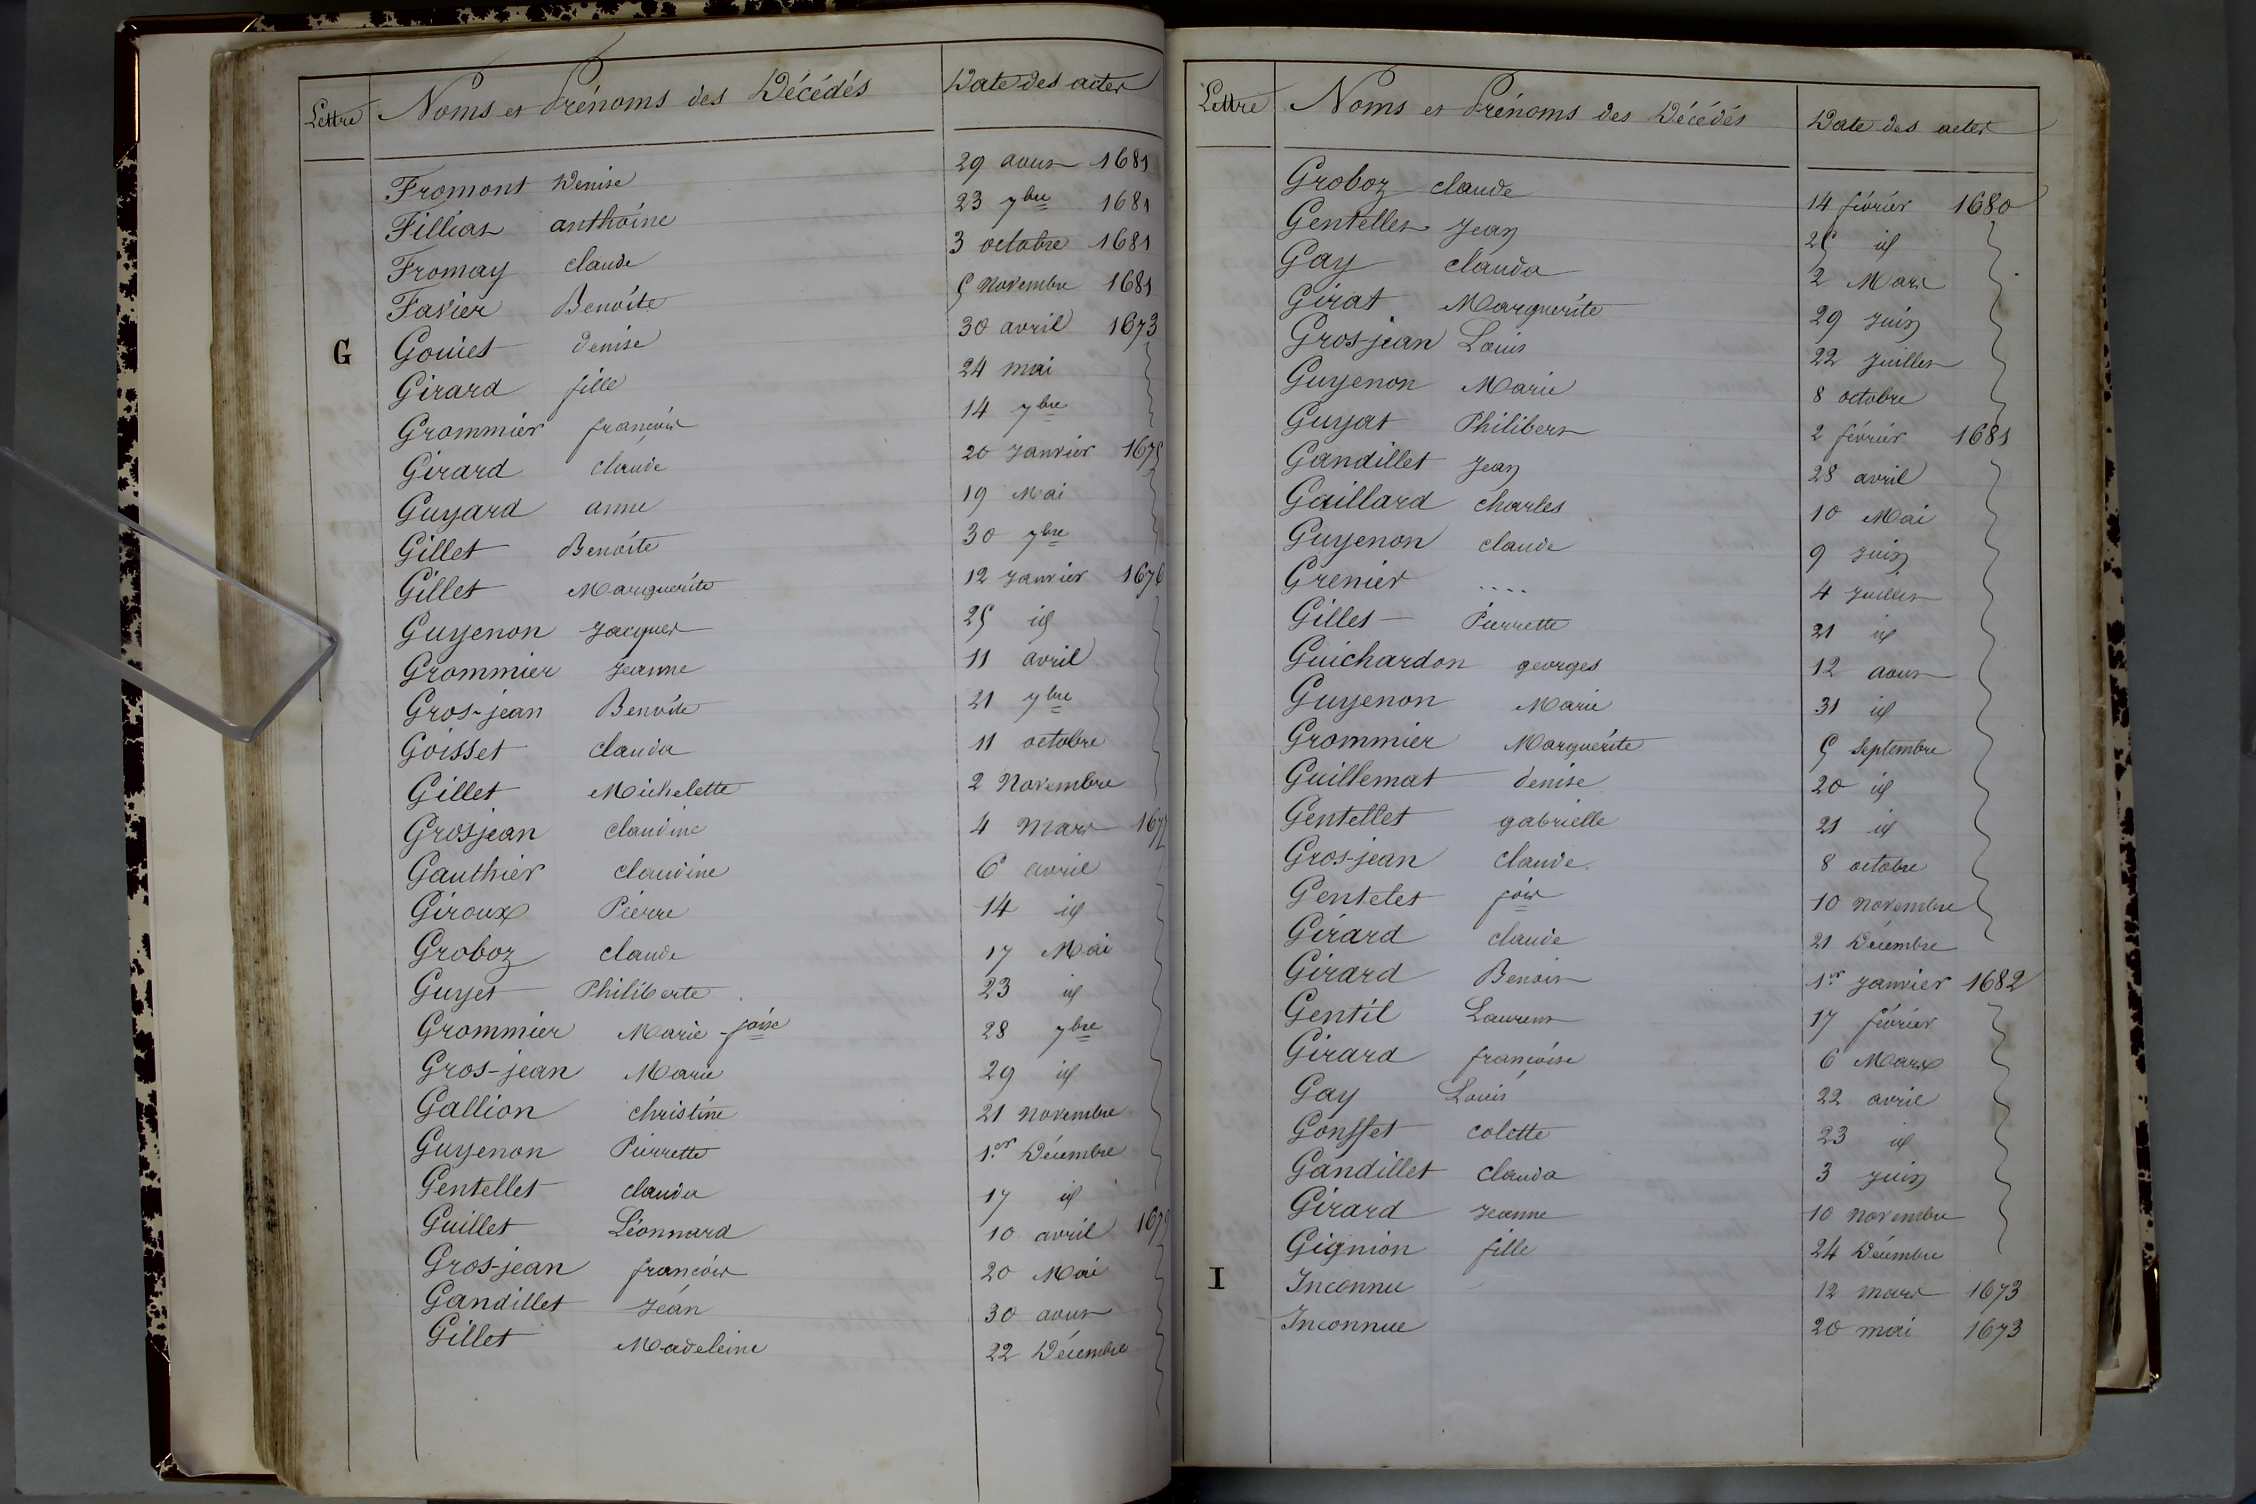 Lettre Noms et Prénoms des Décédés Date des actes
Fromont Denise 29 aoust 1681
Fillias anthoine 23 7bre 1681
Fromay claude 3 octobre 1681
Favier Benoite 5 Novembre 1681
G Gouiet denise 30 avril 1673
Girard fille 24 mai
Grommier françois 14 7bre
Girard claude 20 Janvier 1675
Guyard anne 19 Mai
Gillet Benoite 30 7bre
Gillet Marguerite 12 Janvier 1676
Guyenon Jacques 25 id
Grommier Jeanne 11 avril
Gros-jean Benoite 21 7bre
Goisset clauda 11 octobre
Gillet Michelette 2 Novembre
Grosjean claudine 4 Mars 1677
Gauthier claudine 6 avril
Giroux Pierre 14 id
Groboz claude 17 Mai
Guyet Philiberte 23 id
Grommier Marie-foise 28 7bre
Gros-jean Marie 29 id
Gallion christine 21 novembre
Guyenon Pierrette 1er Décembre
Gentellet clauda 17 id
Guillet Léonnard 10 avril 1679
Gros-jean françois 20 Mai
Gandillet Jean 30 aoust
Gillet Madeleine 22 Décembre
Lettre Noms et Prénoms des Décédés Date des actes
Groboz claude 14 février 1680
Gentellet Jean 25 id
Gay clauda 2 Mars
Girat Marguerite 29 Juin
Grosjean Louis 22 Juillet
Guyenon Marie 8 octobre
Guyat Philibert 2 février 1681
Gandillet Jean 28 avril
Gaillard charles 10 Mai
Guyenon claude 9 Juin
Grenier .... 4 Juillet
Gillet Pierrette 21 id
Guichardon georges 12 aoust
Guyenon Marie 31 id
Grommier Marguerite 5 Septembre
Guillemat denise 20 id
Gentellet gabrielle 21 id
Gros-jean claude 8 octobre
Gentelet fois 10 novembre
Girard claude 21 Décembre
Girard Benoit 1er Janvier 1682
Gentil Laurent 17 février
Girard françoise 6 Mars
Gay Louis 22 avril
Gonsset colette 23 id
Gandillet Clauda 3 Juin
Girard Jeanne 10 novembre
Gignion fille 24 Décembre
I Inconnu 12 mars 1673
Inconnue 20 mai 1673